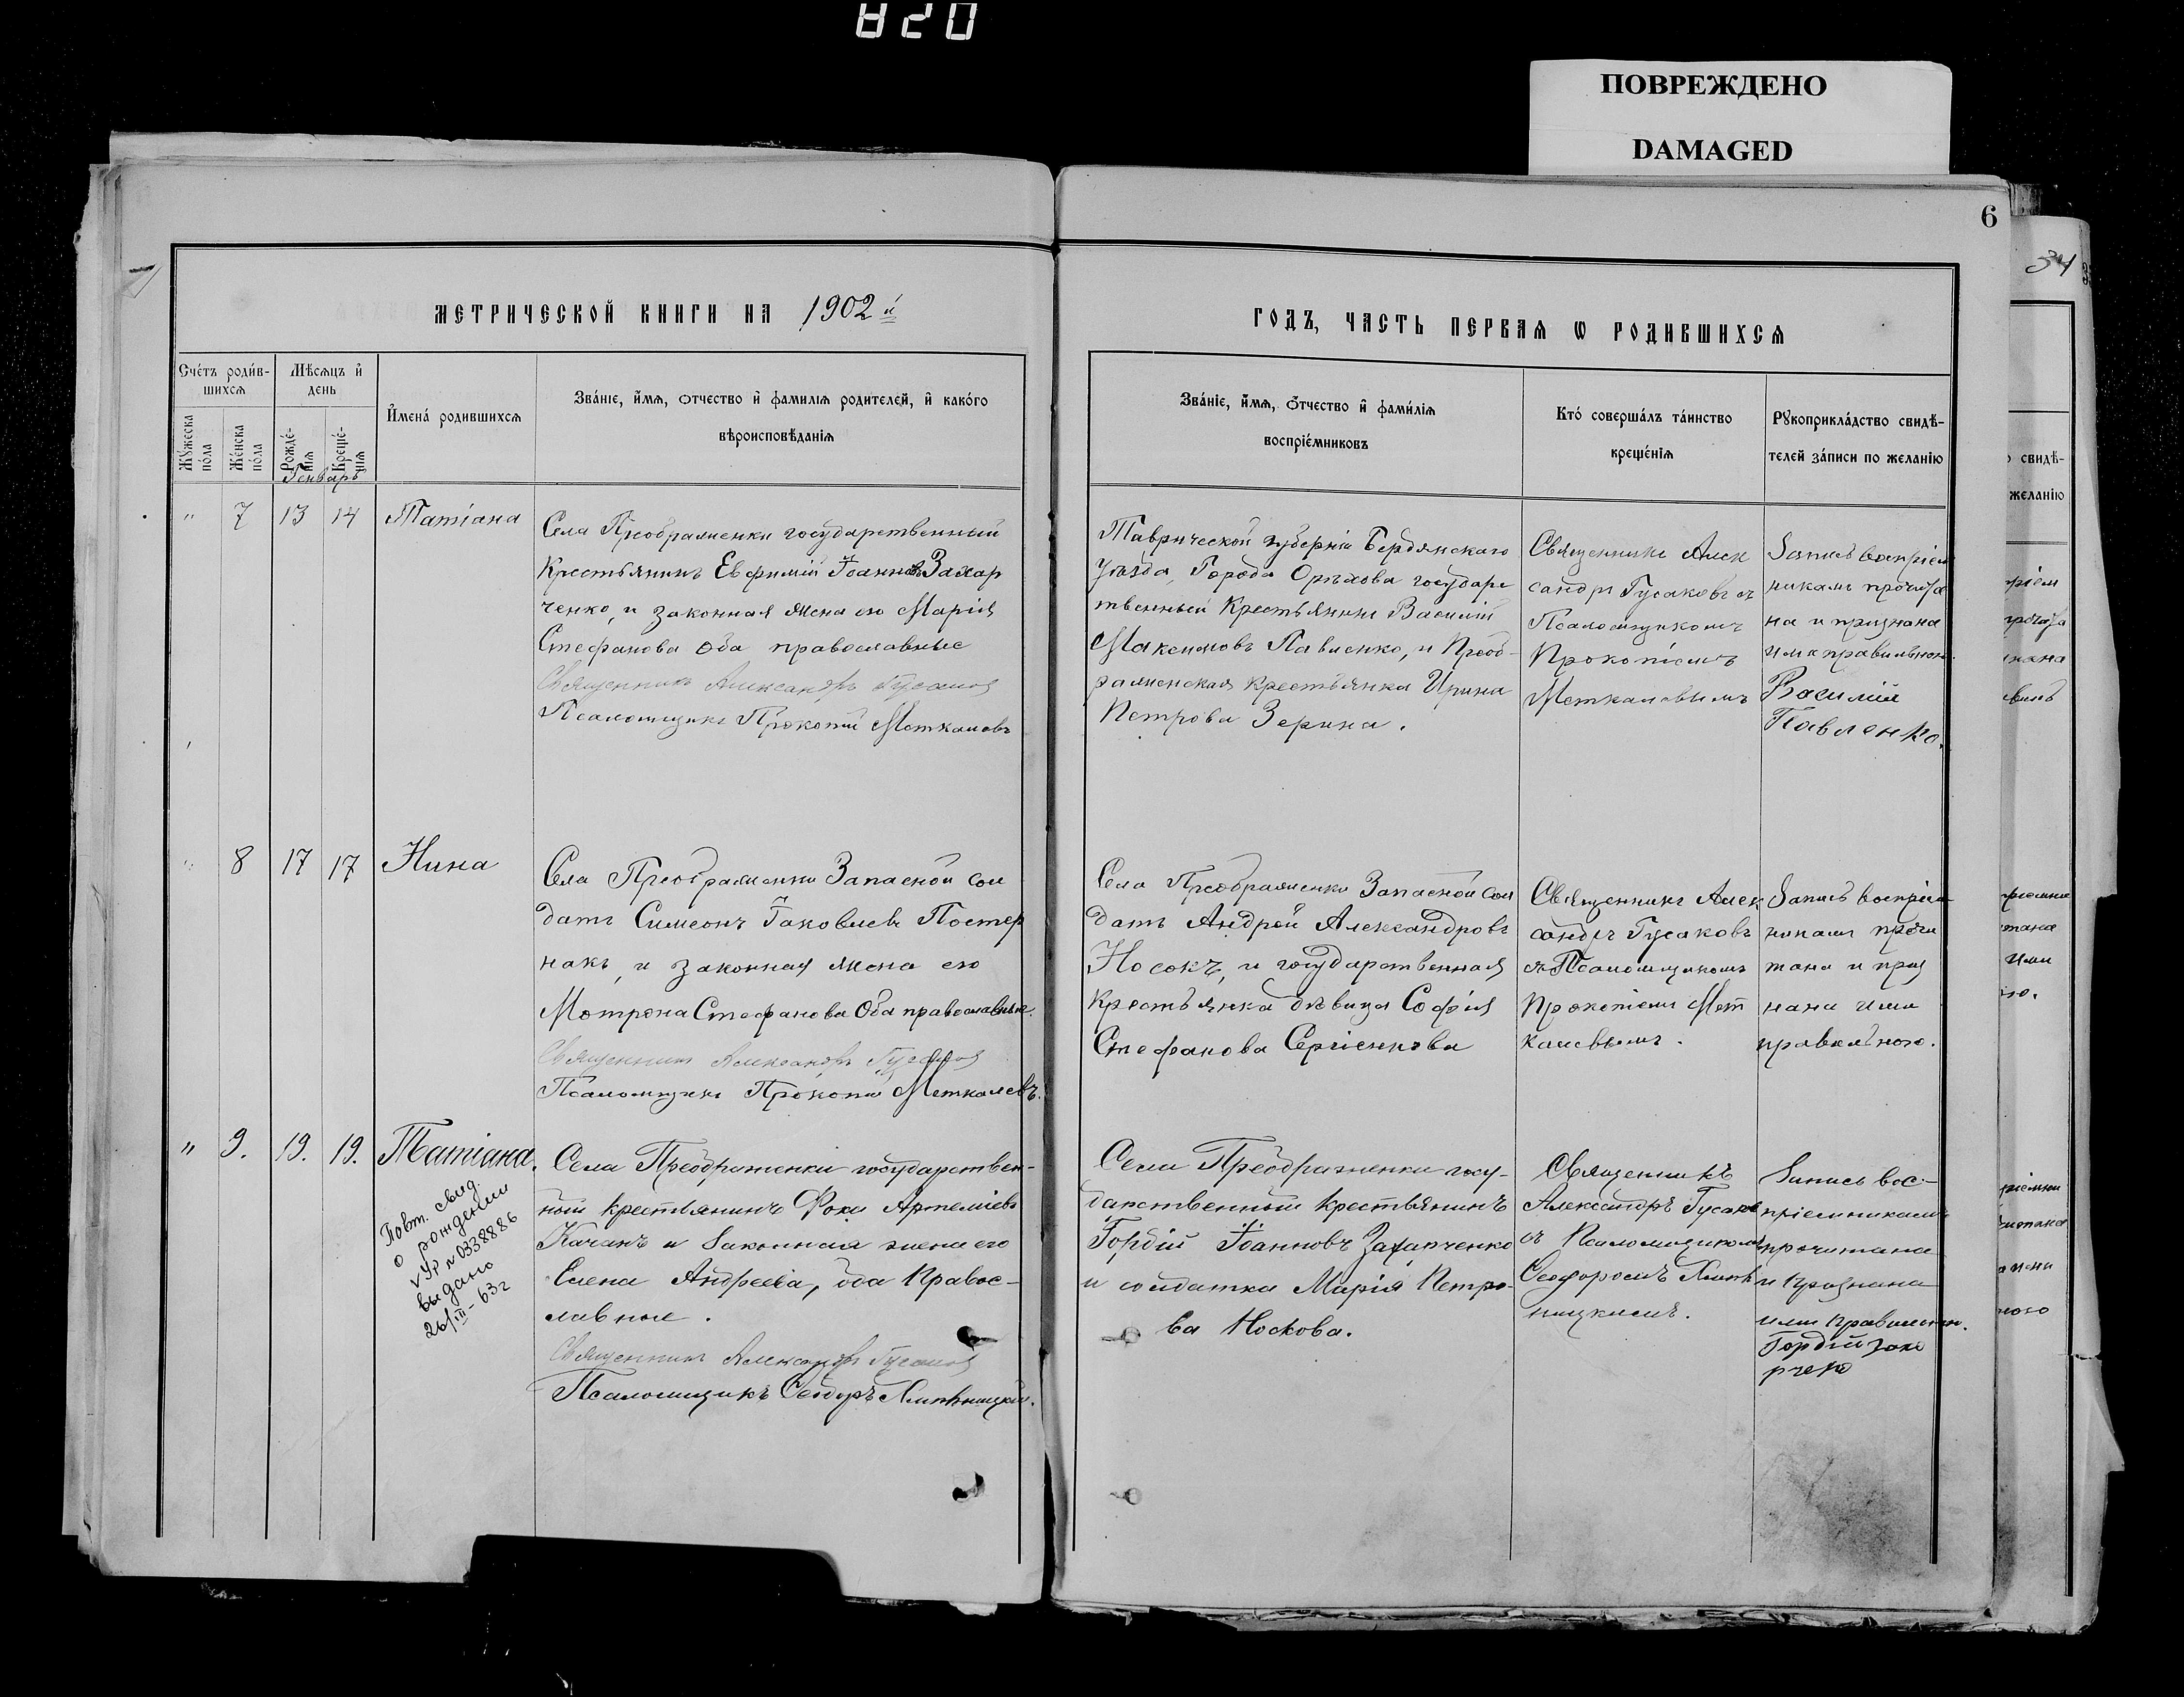 820
ПОВРЕЖДЕНО
DAMAGED
6
34
МЕТРИЧЕСКОЙ КНИГИ НА 1902й
ГОДЪ, ЧАСТЬ ПЕРВАЯ Ѡ РОДИВШИХСЯ
Счетъ родив-
шихся
Мѣсяцъ и
день
Мужеска
пола
Женска
пола
Рожде-
нія
Креще-
нія
Генварь
Имена родившихся
Званіе, имя, отчество и фамилія родителей, и какого
вѣроисповѣданія
Званіе, имя, отчество и фамилія
воспріемниковъ
Кто совершалъ таинство
крещенія
Рукоприкладство свидѣ-
телей записи по желанію
" 7 13 14 Татіана
Села Преображенки государственный
Крестьянинъ Евфимій Іоанновъ Захар
ченко, и законная жена его Марія
Стефанова Оба православные
Священникъ Александръ Гусаков
Псаломщикъ Прокопій Меткаловъ
Таврической губерніи Бердянскаго
Уѣзда, Города Орѣхова государс
твенный Крестьянинъ Василій
Максимовъ Павленко, и Преоб-
раженская крестьянка Ирина
Петрова Зерина.
Священникъ Алек
сандръ Гусаковъ съ
Псаломщикомъ
Прокопіемъ
Меткаловымъ
Запись воспріем
никамъ прочита
на и признана
ими правильною.
Василій
Павленко.
" 8 17 17 Нина
Села Преображенки Запасной сол
датъ Симеонъ Іаковлевъ Постер
накъ, и законная жена его
Мотрона Стефанова Оба православные.
Священникъ Александръ Гусаков
Псаломщикъ Прокопій Меткаловъ.
Села Преображенки Запасной сол
датъ Андрей Александровъ
Носокъ, и государственная
Крестьянка дѣвица Софія
Стефанова Сергіенкова
Священникъ Алек
сандръ Гусаковъ
съ Псаломщикомъ
Прокопіемъ Мет
каловымъ.
Запись воспріем
никамъ прочи
тана и приз
нана ими
правильною.
" 9. 19. 19. Татіана.
Повт. свид.
о рождении
УР №0338886
выдано
26/III-63г
Села Преображенки государствен-
ный крестьянинъ Фока Артеміевъ
Качанъ и законная жена его
Елена Андреева, оба Правос-
лавные.
Священникъ Александръ Гусаков
Псаломщикъ
Села Преображенки госу-
дарственный крестьянинъ
Гордій Іоанновъ Захарченко
и солдатка Марія Петро-
ва Носкова.
Священникъ
Александръ Гусаковъ
съ Псаломщикомъ
Ѳеодоромъ
ницкимъ.
Запись вос-
пріемникамъ
прочитана
и признана
ими правильною.
Гордій Заха
рченко